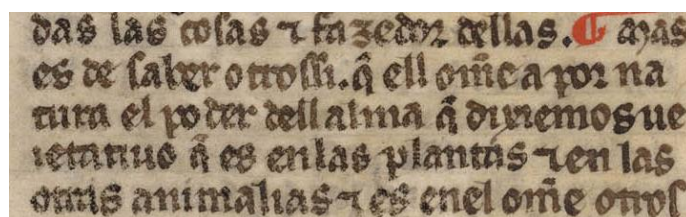 das las cosas ⁊ fazedor dellas. ¶ Mas
es de saber otrossi. q̃ ell om̃e a por na
tura el poder dell alma q̃ dixiemos ue
ietatiuo q̃ es en las plantas ⁊ en las
otras animalias ⁊ es enel om̃e otros